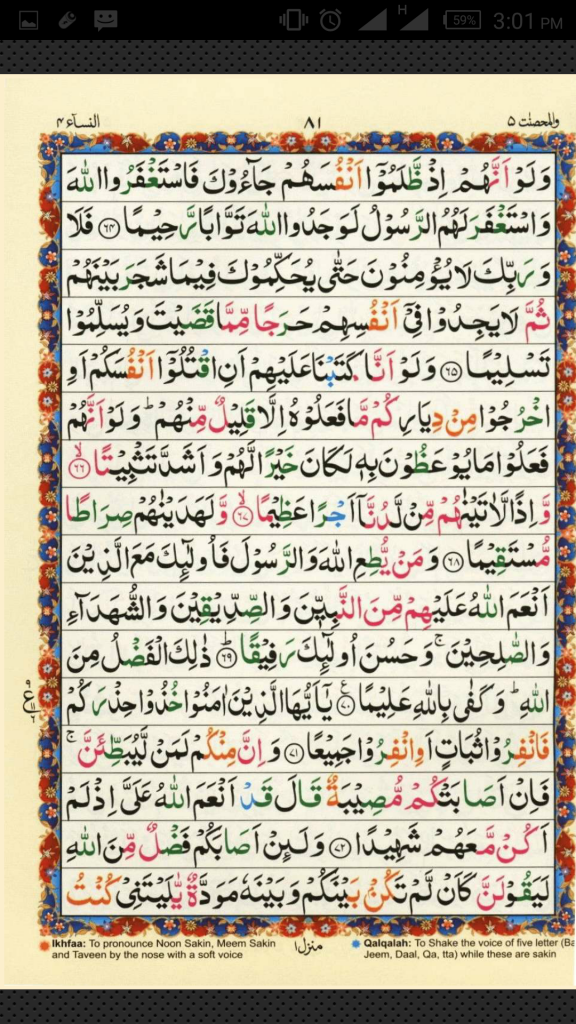 H 59% 3:01 PM
النساۤء ۴ ۸۱ والمحصنٰت ۵
وَلَوْ اَنَّهُمْ اِذْ ظَّلَمُوْۤا اَنْفُسَهُمْ جَآءُوْكَ فَاسْتَغْفَرُوا اللّٰهَ
وَاسْتَغْفَرَ لَهُمُ الرَّسُوْلُ لَوَجَدُوا اللّٰهَ تَوَّابًا رَّحِيْمًا ﴿۶۴﴾ فَلَا
وَ رَبِّكَ لَا يُؤْمِنُوْنَ حَتّٰى يُحَكِّمُوْكَ فِيْمَا شَجَرَ بَيْنَهُمْ
ثُمَّ لَا يَجِدُوْا فِيْۤ اَنْفُسِهِمْ حَرَجًا مِّمَّا قَضَيْتَ وَيُسَلِّمُوْا
تَسْلِيْمًا ﴿۶۵﴾ وَلَوْ اَنَّا كَتَبْنَا عَلَيْهِمْ اَنِ اقْتُلُوْۤا اَنْفُسَكُمْ اَوِ
اخْرُجُوْا مِنْ دِيَارِكُمْ مَّا فَعَلُوْهُ اِلَّا قَلِيْلٌ مِّنْهُمْ ؕ وَلَوْ اَنَّهُمْ
فَعَلُوْا مَا يُوْعَظُوْنَ بِهٖ لَكَانَ خَيْرًا لَّهُمْ وَاَشَدَّ تَثْبِيْتًا ﴿۶۶﴾ۙ
وَّاِذًا لَّاٰتَيْنٰهُمْ مِّنْ لَّدُنَّاۤ اَجْرًا عَظِيْمًا ﴿۶۷﴾ۙ وَّلَهَدَيْنٰهُمْ صِرَاطًا
مُّسْتَقِيْمًا ﴿۶۸﴾ وَمَنْ يُّطِعِ اللّٰهَ وَالرَّسُوْلَ فَاُولٰٓئِكَ مَعَ الَّذِيْنَ
اَنْعَمَ اللّٰهُ عَلَيْهِمْ مِّنَ النَّبِيّٖنَ وَالصِّدِّيْقِيْنَ وَالشُّهَدَآءِ
وَالصّٰلِحِيْنَ ۚ وَحَسُنَ اُولٰٓئِكَ رَفِيْقًا ﴿۶۹﴾ؕ ذٰلِكَ الْفَضْلُ مِنَ
اللّٰهِ ؕ وَكَفٰى بِاللّٰهِ عَلِيْمًا ﴿۷۰﴾ يٰۤاَيُّهَا الَّذِيْنَ اٰمَنُوْا خُذُوْا حِذْرَكُمْ
فَانْفِرُوْا ثُبَاتٍ اَوِ انْفِرُوْا جَمِيْعًا ﴿۷۱﴾ وَاِنَّ مِنْكُمْ لَمَنْ لَّيُبَطِّئَنَّ ۚ
فَاِنْ اَصَابَتْكُمْ مُّصِيْبَةٌ قَالَ قَدْ اَنْعَمَ اللّٰهُ عَلَيَّ اِذْ لَمْ
اَكُنْ مَّعَهُمْ شَهِيْدًا ﴿۷۲﴾ وَلَئِنْ اَصَابَكُمْ فَضْلٌ مِّنَ اللّٰهِ
لَيَقُوْلَنَّ كَاَنْ لَّمْ تَكُنْ بَيْنَكُمْ وَبَيْنَهٗ مَوَدَّةٌ يّٰلَيْتَنِيْ كُنْتُ
Ikhfaa: To pronounce Noon Sakin, Meem Sakin
and Taveen by the nose with a soft voice
منزل۱
Qalqalah: To Shake the voice of five letter (Ba
Jeem, Daal, Qa, tta) while these are sakin